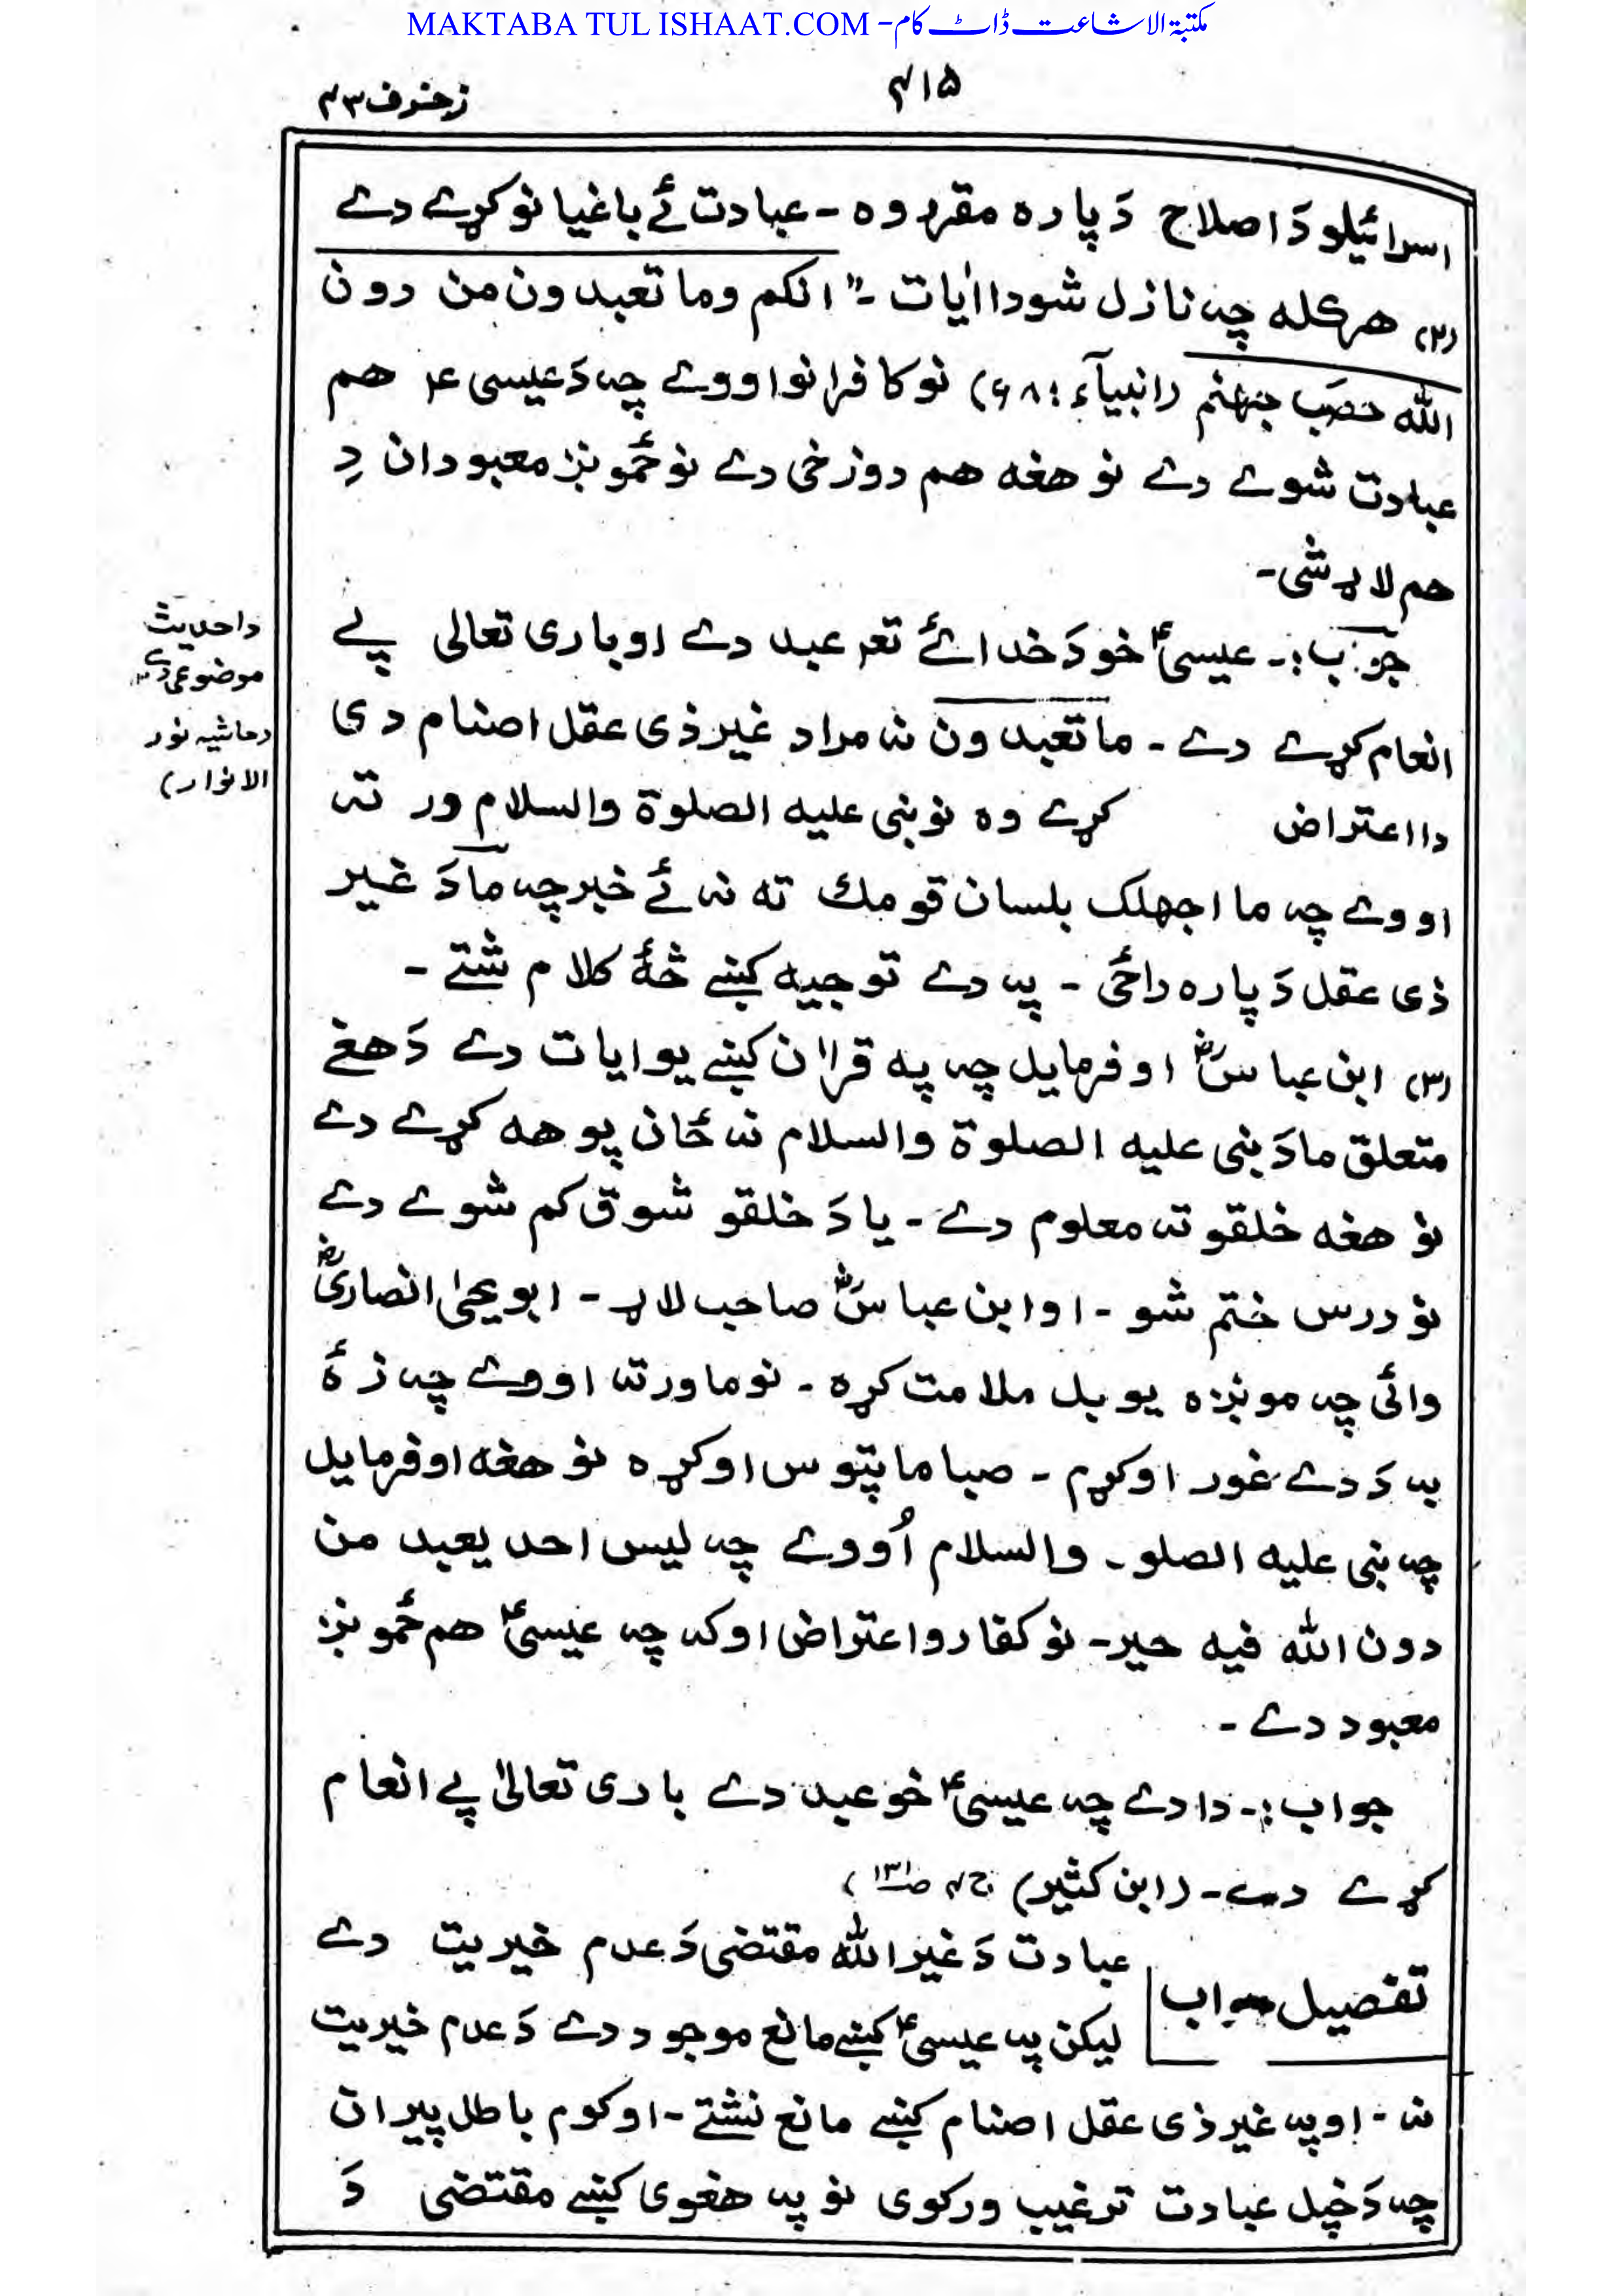 MAKTABA TUL ISHAAT.COM - مکتبة الاشاعت ڈاٹ کام
۴۱۵
زخرف ۴۳
اسرائیلو دَ اصلاح دَ پاره مقرر وه - عبادت ئے باغیانو کړے دے
(۲) هر کله چه نازل شو دا اٰیات -" انکم وما تعبدون من دون
الله حصب جهنم (انبیآء : ۹۸) نو کافرانو اووے چه دَ عیسی ع هم
عبادت شوے دے نو هغه هم دوزخی دے نو ځمونږ معبودان دِ
هم لاړ شی -
جواب :- عیسیٰؑ خو دَ خدائے تعه عبد دے او باری تعالی پے
انعام کړے دے - ما تعبدون نه مراد غیر ذی عقل اصنام دی
دا اعتراض کړے وه نو نبی علیه الصلوة والسلام ور ته
اووے چه ما اجهلک بلسان قومك ته نه ئے خبر چه ما دَ غیر
ذی عقل دَ پاره راځی - په دے توجیه کښے څهٔ کلام شتے -
(۳) ابن عباسؓ اوفرمایل چه په قراٰن کښے یو ایات دے دَ هغے
متعلق ما دَ نبی علیه الصلوة والسلام نه ځان پوهه کړے دے
نو هغه خلقو ته معلوم دے - یا دَ خلقو شوق کم شوے دے
نو درس ختم شو - او ابن عباسؓ صاحب لاړ - ابو یحیٰ انصاریؓ
وائی چه مونږه یو بل ملامت کړه - نو ما ورته اووے چه زهٔ
به دَ دے غور اوکړم - صبا ما پتوس اوکړه نو هغه اوفرمایل
چه نبی علیه الصلو - والسلام اُووے چه لیس احد یعبد من
دون الله فیه خیر - نو کفارو اعتراض اوکه چه عیسیٰؑ هم ځمونږ
معبود دے -
جواب :- دا دے چه عیسیٰؑ خو عبد دے باری تعالیٰ پے انعام
کړے دے - (ابن کثیر) ج۴ ص۱۳۱)
تفصیل جواب
عبادت دَ غیر الله مقتضی دَ عدم خیریت دے
لیکن په عیسیٰؑ کښے مانع موجود دے دَ عدم خیریت
نه - او په غیر ذی عقل اصنام کښے مانع نشتے - او کوم باطل پیران
چه دَ خپل عبادت ترغیب ورکوی نو په هغوی کښے مقتضی دَ
دا حدیث
موضوعی دے
(حاشیه نور
الانوار)